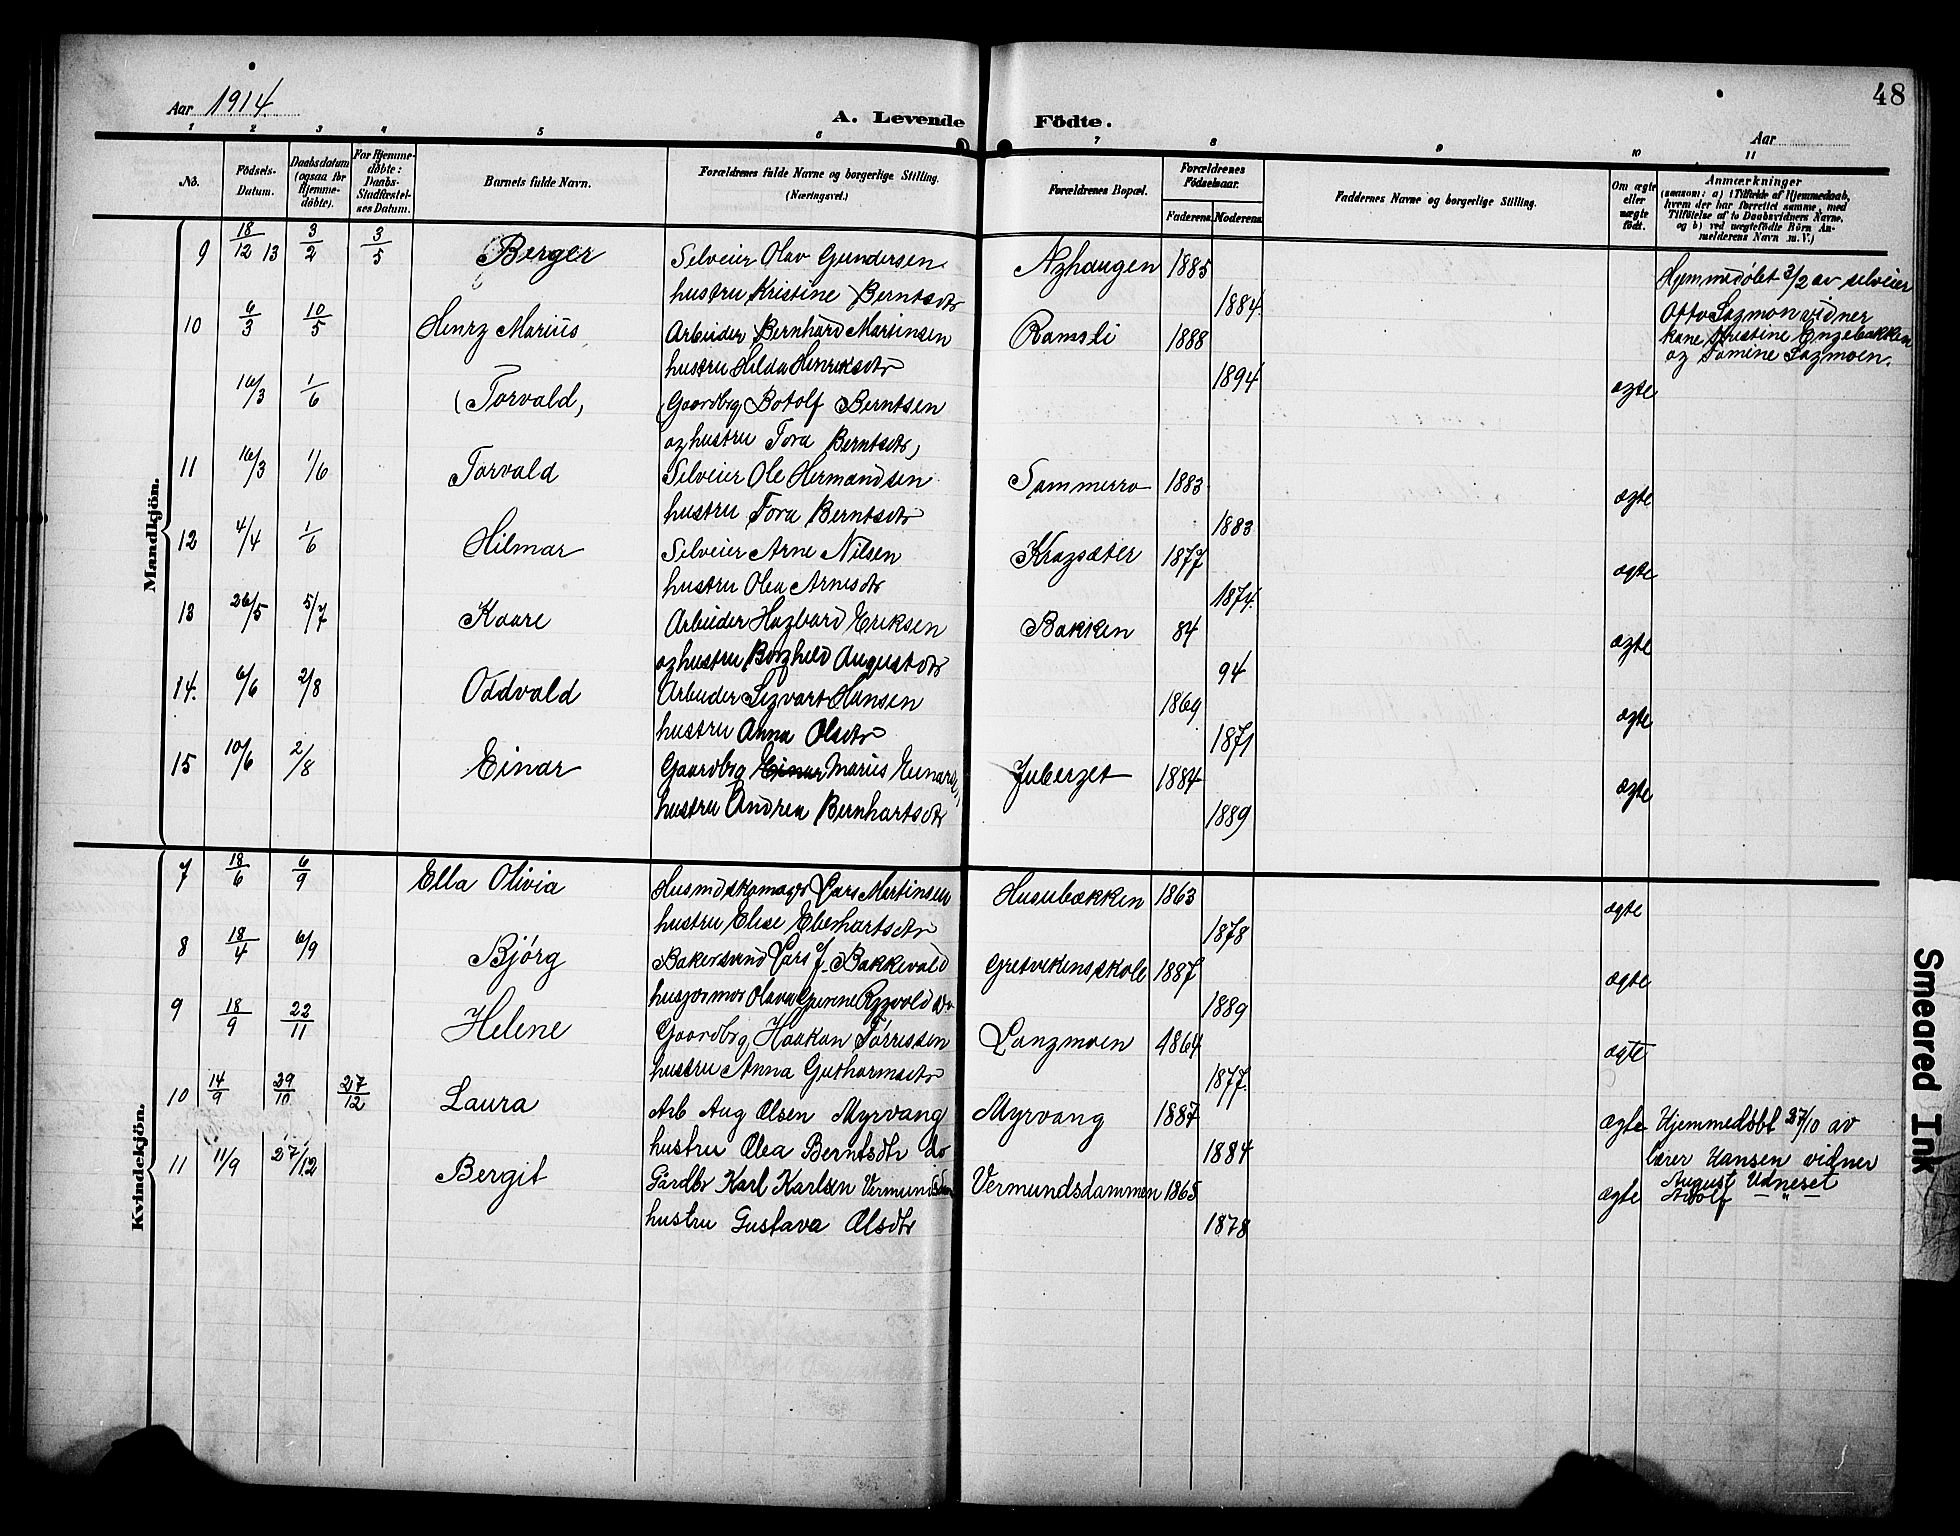 48
Aar 1914.
A. Levende Födte.
Aar
1 2 3 4 5 6 7 8 9 10 11
No.
Födsels-Datum.
Daabsdatum (ogsaa for Hjemme-döbte).
For Hjemme-döbte: Daabs-Stadfæstel-ses Datum.
Barnets fulde Navn.
Forældrenes fulde Navne og borgerlige Stilling. (Næringsvei.)
Forældrenes Bopæl.
Forældrenes Födselsaar.
Faderens. Moderens.
Faddernes Navne og borgerlige Stilling.
Om ægte eller uægte födt.
Anmærkninger
(saasom: a) i Tilfælde af Hjemmedaab,
hvem der har forrettet samme, med
Tilföielse af to Daabsvidners Navne,
og b) ved uægtefödte Börn An-
melderens Navn m. V.)
Mandkjön.
9 18/12 13 3/2 3/5 Berger Selveier Olav Gundersen Aghaugen 1885 Hjemmedøbt 3/2 av selveier
hustru Kristine Berntsdtr 1884. Otto Sagmoen vidner
10 6/3 10/5 Henry Marius, Arbeider Bernhard Martinsen Ramsli 1888 kone Kristine Engebakken
hustru Hilda Henriksdtr 1894 og Tomine Sagmoen.
16/3 1/6 (Torvald, (Gaardbrg Botolf Berntsen ægte
og hustru Tora Berntsdtr)
11 16/3 1/6 Torvald Selveier Ole Hermandsen Sommerro 1883 ægte
hustru Tora Berntsdtr 1883
12 4/4 1/6 Hilmar Selveier Arne Nilsen Kragsæter 1877 ægte
hustru Olea Arnesdtr 1874.
13 26/5 5/7 Kaare Arbeider Hagbard Eriksen Bakken 84 ægte
og hustru Borghild Augustdtr 94
14. 6/6 2/8 Oddvald Arbeider Sigvart Hansen 1869 ægte
hustru Anna Olsdtr 1871
15 10/6 2/8 Einar Gaardbrg Einar Marius Einars., Juberget 1884 ægte
hustru Andrea Bernhartsdtr 1889
Kvindekjön.
7 18/6 6/9 Ella Olivia Husmd skomager Lars Martinsen Husubakken 1863 ægte
hustru Elise Eberhartsdtr 1878
8 18/4 6/9 Bjørg Bakersvend Lars J. Bakkevold Gretvikens skole 1887 ægte
husjormor Olava 1889
9 18/9 22/11 Helene Gaardbrg Haakon Torressen Langmoen 1864 ægte
hustru Anna Guthormsdtr 1877.
10 14/9 29/10 27/12 Laura Arb Aug Olsen Myrvang Myrvang 1887 ægte Hjemmedøbt 27/10 av
hustru Olea Berntsdtr do 1884 lærer Hansen vidner
11 11/9 27/12 Bergit Gårdbr Karl Karlsen Vermundsdam Vermundsdammen 1865 ægte August Udneset
Adolf — " —
hustru Gustava Olsdtr 1878
Smeared Ink